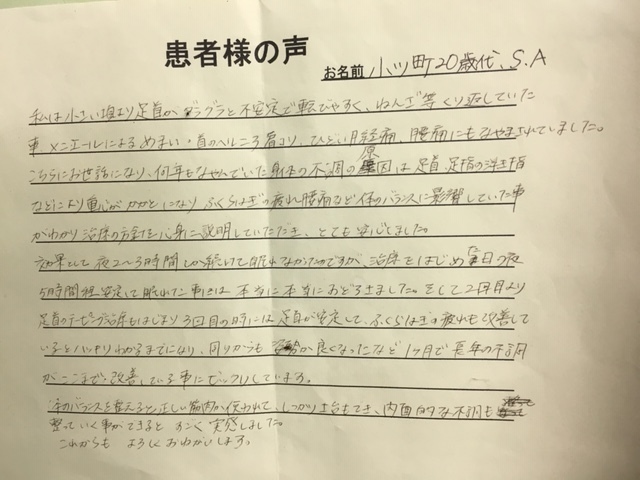 患者様の声
お名前 小ツ町20歳代、S.A
私は小さい頃より足首がグラグラと不安定で転びやすく、ねんざ等くり返していた
事、メニエールによるめまい・首のヘルニア、肩こり、ひどい月経痛、腰痛にもなやまされていました。
こちらにお世話になり、何年もなやんでいた身体の不調の原因は足首、足指の浮き指
などにより重心がかかとになり ふくらはぎの疲れ腰痛など体のバランスに影響していた事
がわかり治療の方針を心身に説明していただき、とても安心しました。
効果として夜2~3時間しか続けて眠れなかったのですが、治療をはじめた日の夜
5時間程安定して眠れた事には本当に本当におどろきました。そして2回目より
足首のテーピング治療もはじまり3回目の時には足首が安定して、ふくらはぎの疲れも改善して
いるとハッキリわかるまでになり、周りからも が良くなったなど1ヶ月で長年の不調
がここまで改善している事にビックリしています。
体のバランスを整えると正しい筋肉が使われて、しっかり土台もでき、内面的な不調も
整っていく事ができると すごく実感しました。
これからも よろしくおねがいします。